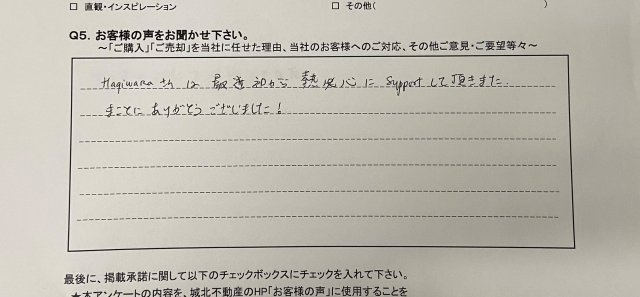 □ 直観・インスピレーション　□ その他(　)
Q5. お客様の声をお聞かせ下さい。
～「ご購入」「ご売却」を当社に任せた理由、当社のお客様へのご対応、その他ご意見・ご要望等々～
Hagiwaraさんは 最初から 熱心に Supportして頂きました.
まことに ありがとう ございました!
最後に、掲載承諾に関して以下のチェックボックスにチェックを入れて下さい。
★本アンケートの内容を、城北不動産のHP「お客様の声」に使用することを